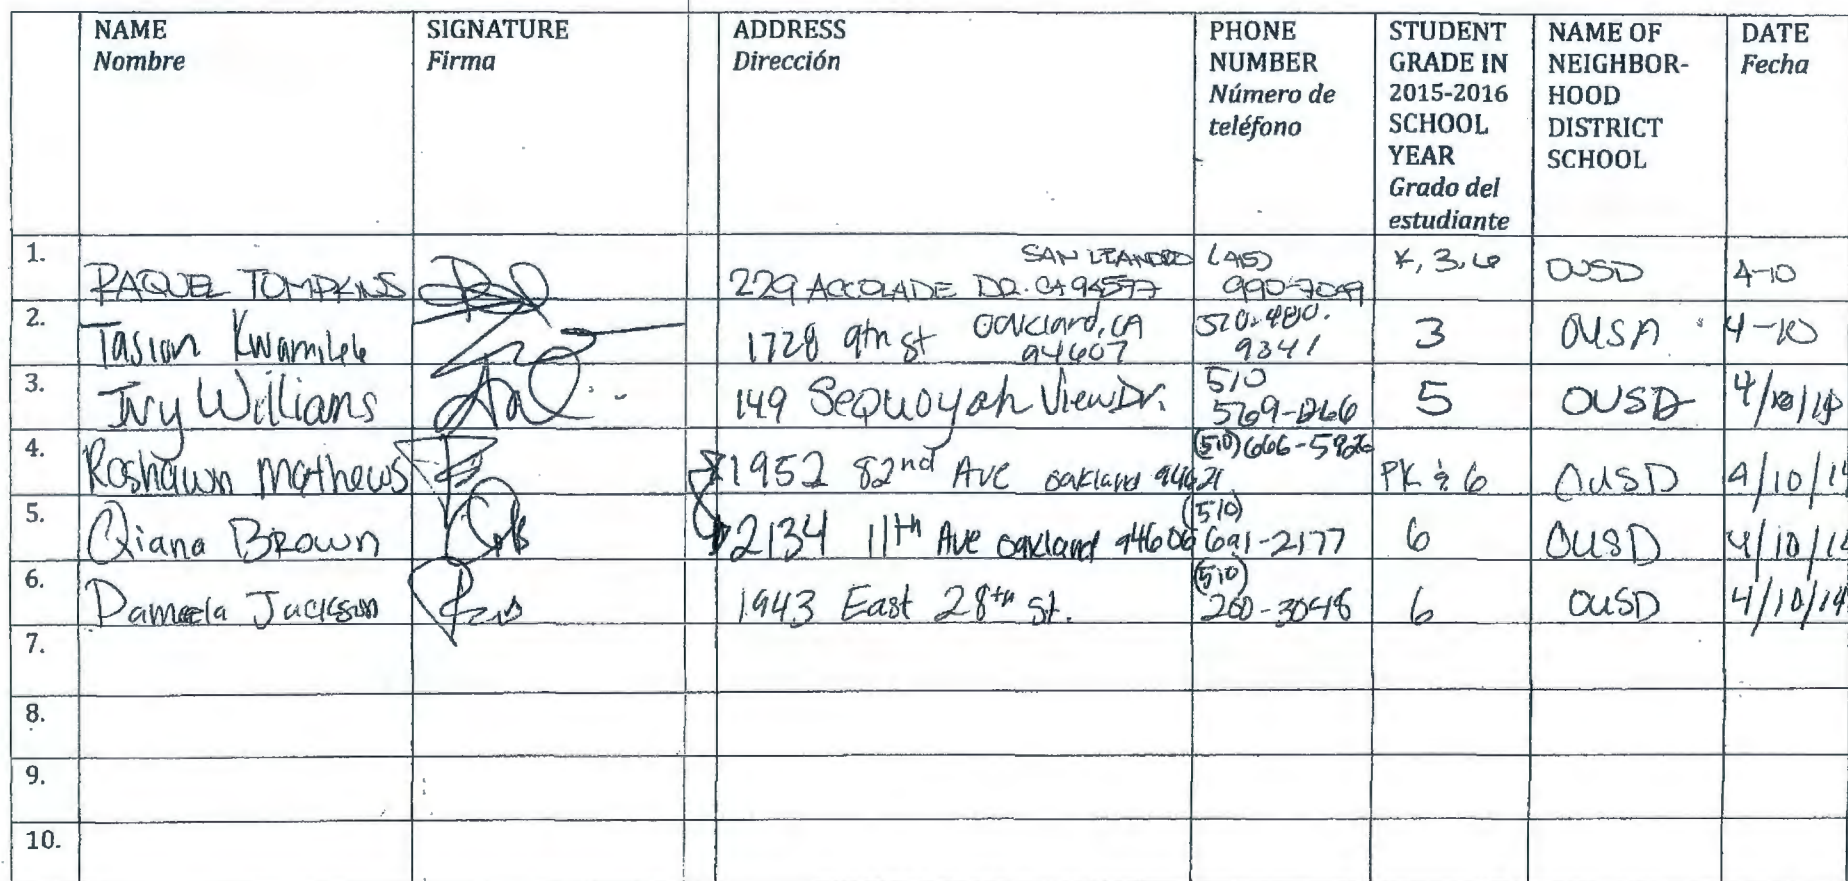 NAME
Nombre
SIGNATURE
Firma
ADDRESS
Dirección
PHONE
NUMBER
Número de
teléfono
STUDENT
GRADE IN
2015-2016
SCHOOL
YEAR
Grado del
estudiante
NAME OF
NEIGHBOR-
HOOD
DISTRICT
SCHOOL
DATE
Fecha
1.
RAQUEL TOMPKINS
SAN LEANDRO
229 ACCOLADE DR. CA 94577
(415)
990-7049
K, 3, 6
OUSD
4-10
2.
Tasion Kwamilele
1728 9th St
Oakland, CA
94607
510-480.
9341
3
4-10
3.
Ivy Williams
149 Sequoyah View Dr.
510
5
OUSD
4.
Roshawn Mathews
1952 82nd Ave oakland 94621
(510) 666-5926
PK & 6
OUSD
5.
Qiana Brown
2134 11th Ave oakland 94606
(510)
691-2177
6
OUSD
6.
Pamela Jackson
1943 East 28th St.
(510)
6
OUSD
4/10/14
7.
8.
9.
10.